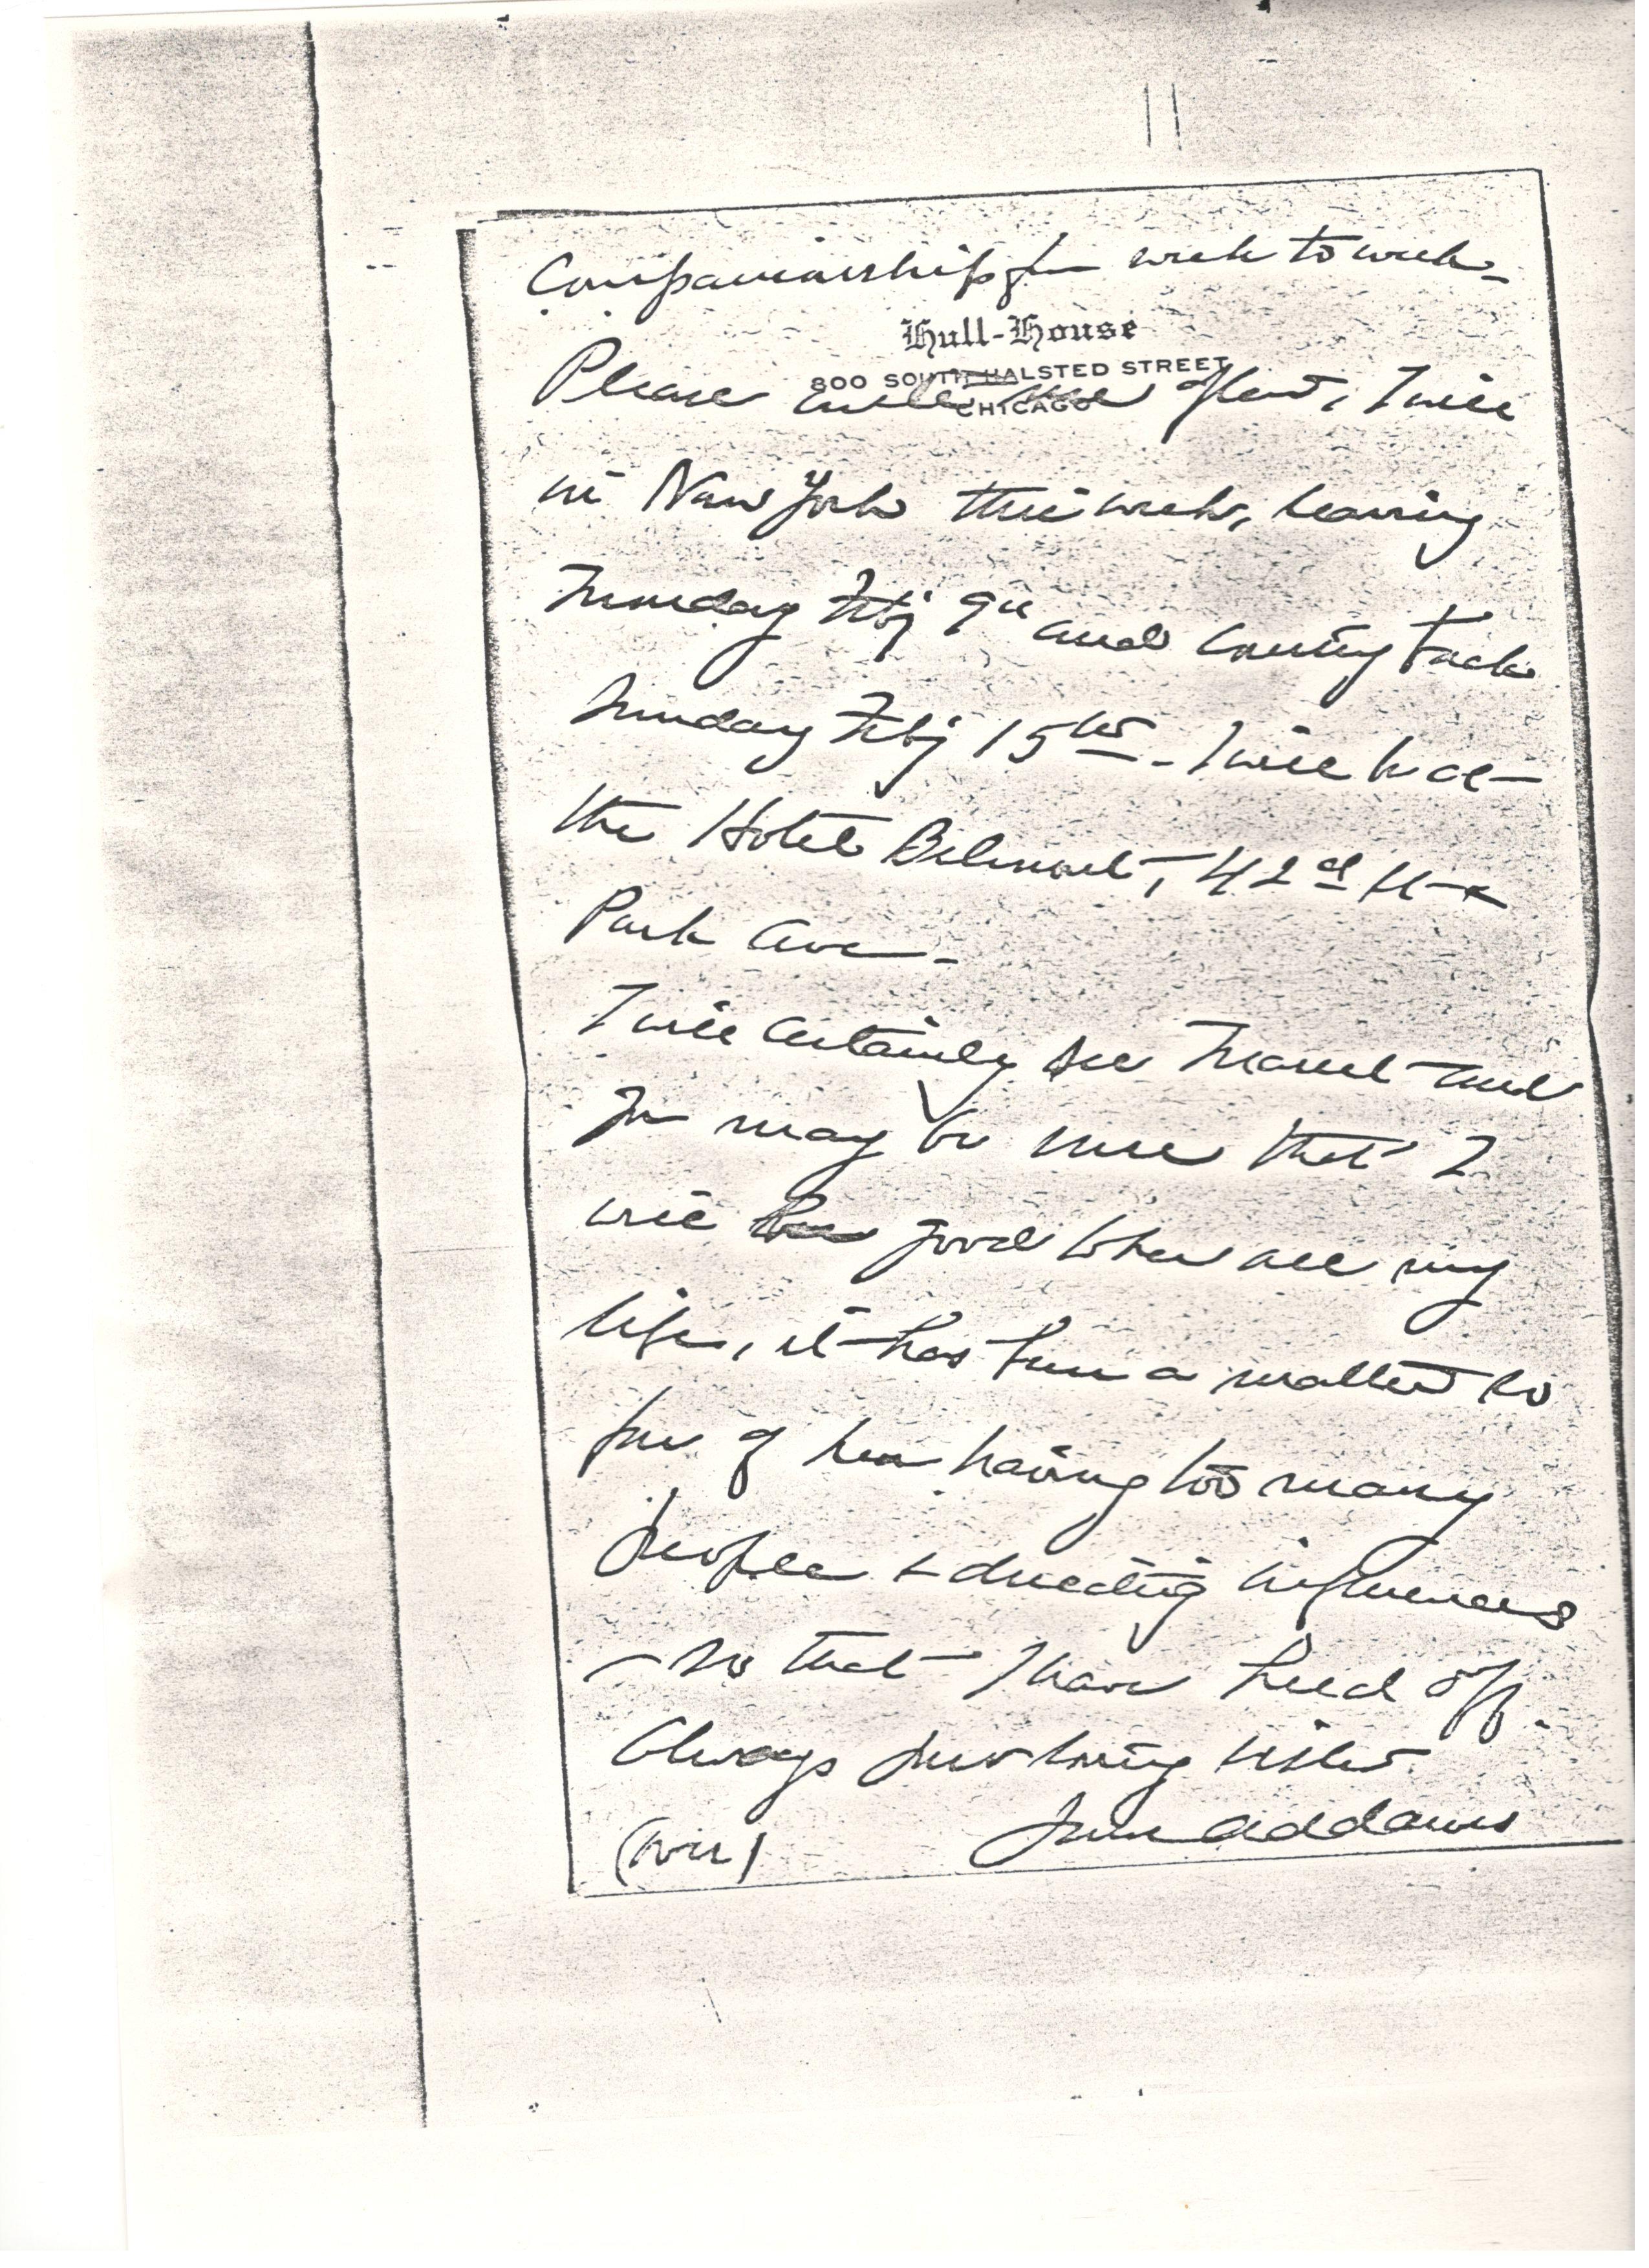 Companionship for week to week -
Hull-House
800 SOUTH HALSTED STREET
CHICAGO
Please write me often, I will
in New York this week, leaving
Monday Feby 9th and coming back
Sunday Feby 15th - I will be at
the Hotel Belmont, 42d St &
Park Ave -
I will certainly see and
you may be sure that I
will be good to her all my
life, it has been a matter so
far of her having too many
people & directing influences
- so that I have held off.
Always your loving sister
(over) Jane Addams